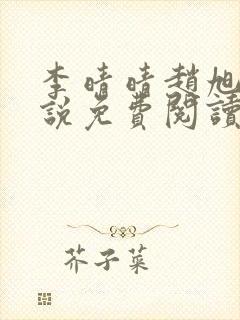 李晴晴趙旭
說免費閱讀
芥子菜